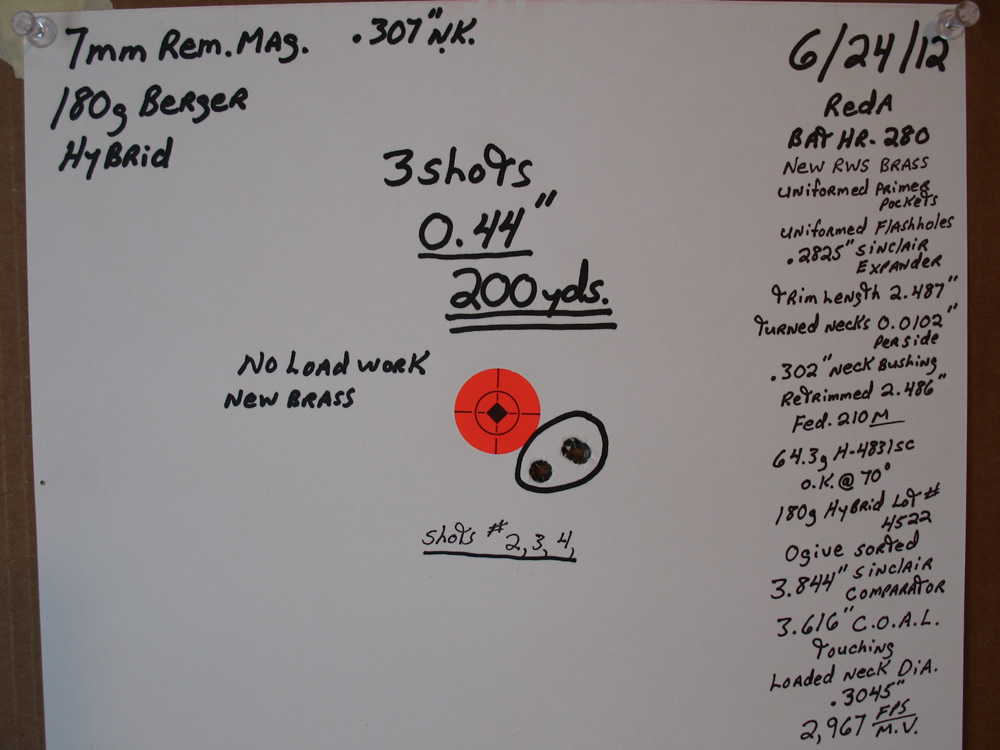 7mm Rem. Mag. .307" NK.
180g Berger
Hybrid
3 shots
0.44"
200 yds.
No Load work
New Brass
Shots # 2, 3, 4,
6/24/12
Red A
BAT HR. 280
New RWS Brass
Uniformed Primer
Pockets
Uniformed Flashholes
.2825" Sinclair
Expander
Trim Length 2.487"
Turned necks 0.0102"
Per side
.302" Neck Bushing
Retrimmed 2.486"
Fed. 210 M
64.3g H-4831sc
O.K. @ 70°
180g Hybrid Lot #
4522
Ogive sorted
3.844" Sinclair
Comparator
3.616" C.O.A.L.
Touching
Loaded Neck Dia.
.3045"
2,967 FPS
M.V.